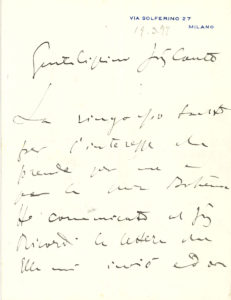 VIA SOLFERINO 27
MILANO
Gentilissimo Sig Conte
La ringrazio tanto
per l'interesse che
prende per me e
per la mia Bohème
Ho comunicato al Sig
Ricordi la lettera che
Ella mi inviò ed